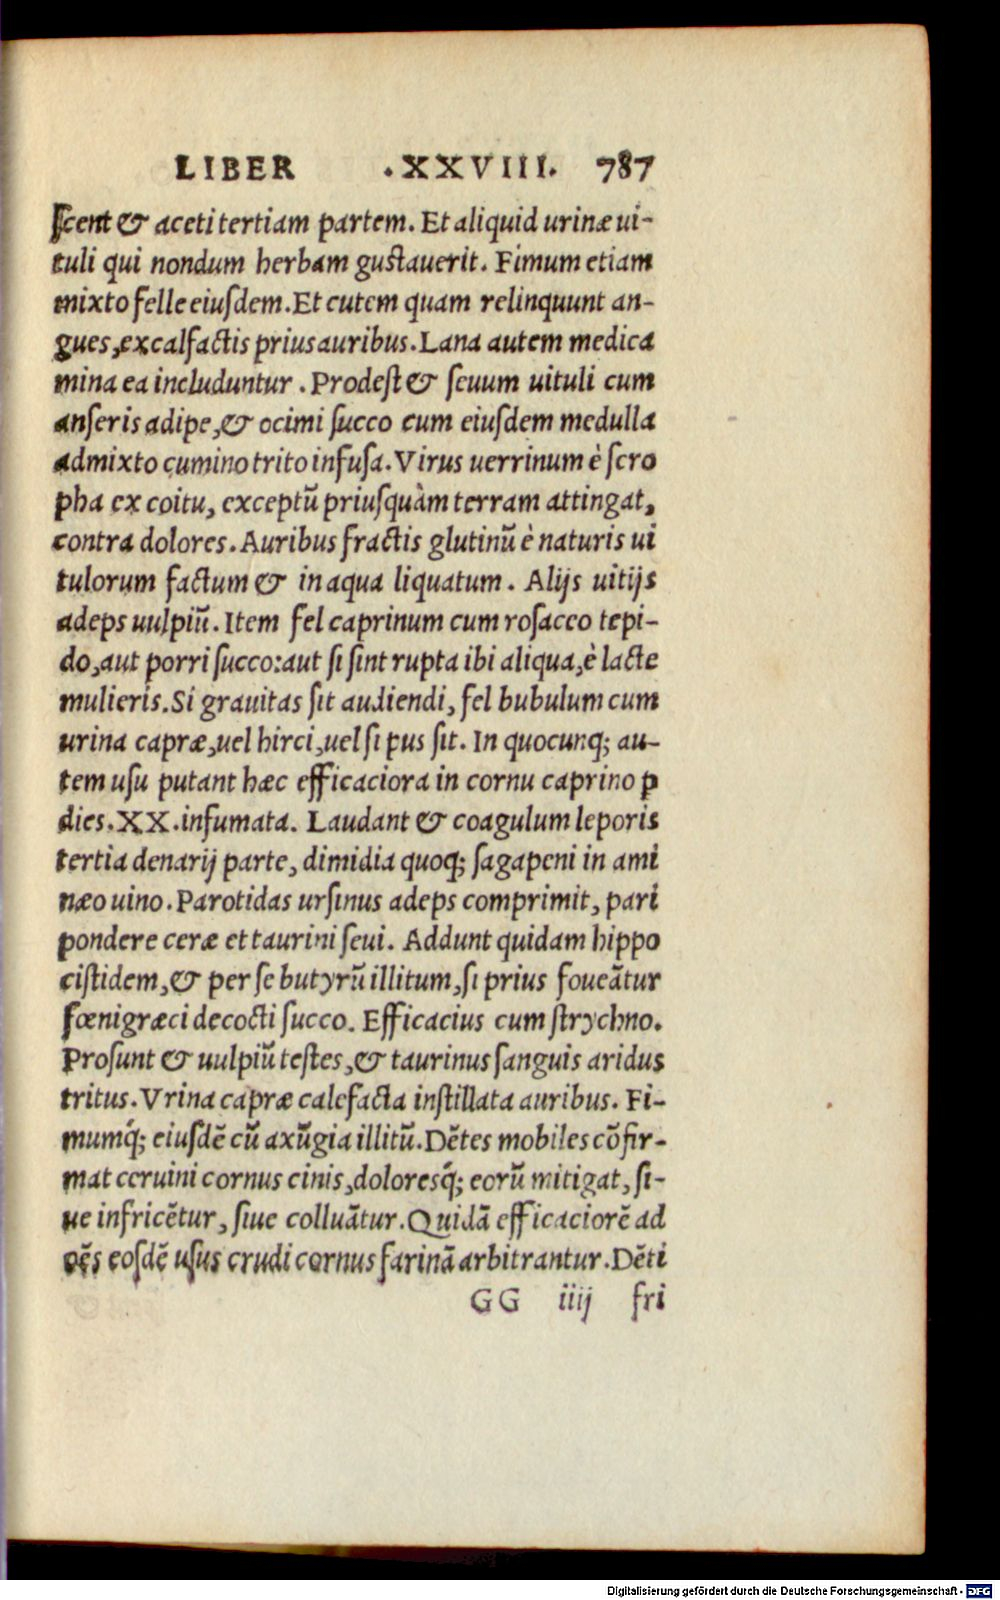 LIBER .XXVIII. 787
ſcent & aceti tertiam partem. Et aliquid urinæ ui-
tuli qui nondum herbam guſtauerit. Fimum etiam
mixto felle eiuſdem. Et cutem quam relinquunt an-
gues, excalfactis prius auribus. Lana autem medica
mina ea includuntur. Prodeſt & ſeuum uituli cum
anſeris adipe, & ocimi ſucco cum eiuſdem medulla
admixto cumino trito infuſa. Virus uerrinum è ſcro
pha ex coitu, exceptũ priuſquàm terram attingat,
contra dolores. Auribus fractis glutinũ è naturis ui
tulorum factum & in aqua liquatum. Alijs uitijs
adeps uulpiũ. Item fel caprinum cum roſaceo tepi-
do, aut porri ſucco: aut ſi ſint rupta ibi aliqua, è lacte
mulieris. Si grauitas ſit audiendi, fel bubulum cum
urina capræ, uel hirci, uel ſi pus ſit. In quocunq; au-
tem uſu putant hæc efficaciora in cornu caprino ꝑ
dies. XX. infumata. Laudant & coagulum leporis
tertia denarij parte, dimidia quoq; ſagapeni in ami
næo uino. Parotidas urſinus adeps comprimit, pari
pondere ceræ et taurini ſeui. Addunt quidam hippo
ciſtidem, & per ſe butyrũ illitum, ſi prius foueãtur
fœnigræci decocti ſucco. Efficacius cum ſtrychno.
Proſunt & uulpiũ teſtes, & taurinus ſanguis aridus
tritus. Vrina capræ calefacta inſtillata auribus. Fi-
mumq́; eiuſdẽ cũ axũgia illitũ. Dẽtes mobiles cõfir-
mat ceruini cornus cinis, doloresq́; eorũ mitigat, ſi-
ue infricẽtur, ſiue colluãtur. Quidã efficaciorẽ ad
oẽs eoſdẽ uſus crudi cornus farinã arbitrantur. Dẽti
GG iiij fri
Digitalisierung gefördert durch die Deutsche Forschungsgemeinschaft - DFG